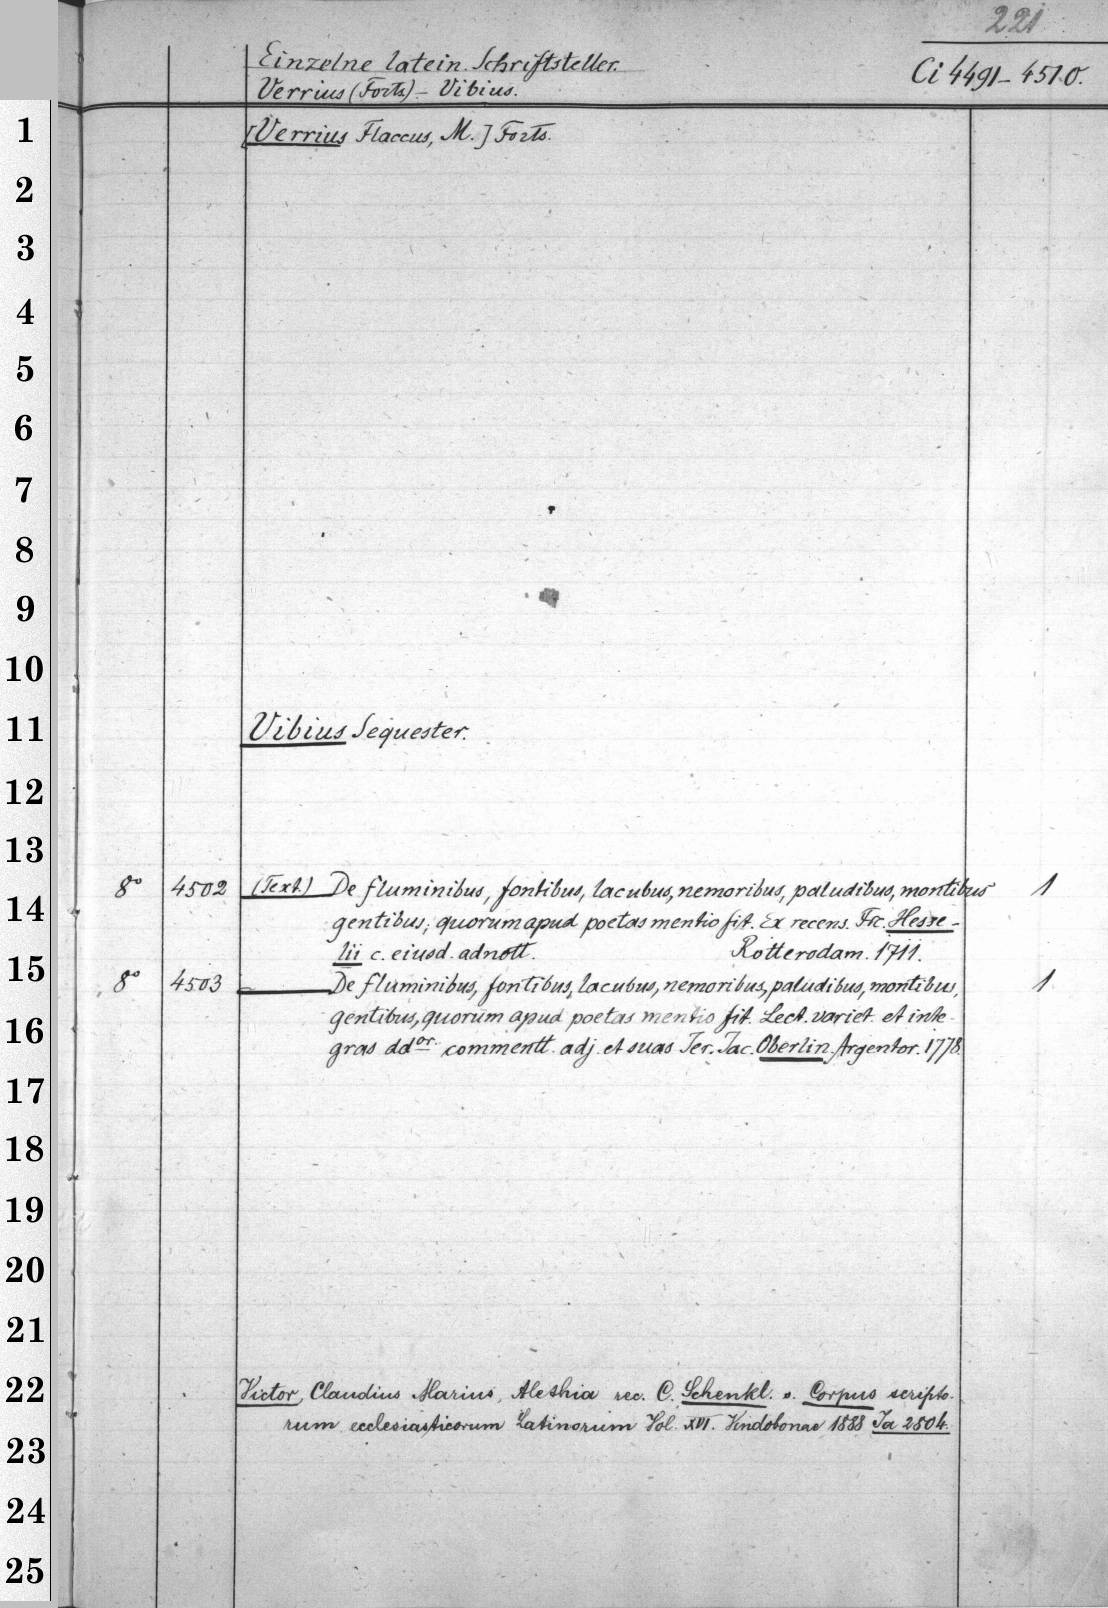 221
Einzelne latein. Schriftsteller.
Ci 4491-4510.
Verrius (Forts.) - Vibius.
1
[Verrius Flaccus, M.] Forts.
2
3
4
5
6
7
8
9
10
11
Vibius Sequester.
12
13
8° 4502 (Text) De fluminibus, fontibus, lacubus, nemoribus, paludibus, montibus 1
14
gentibus, quorum apud poetas mentio fit. Ex recens. Frc. Hesse-
lii c. eiusd. adnott. Rotterodam. 1711.
15
8° 4503 — De fluminibus, fontibus, lacubus, nemoribus, paludibus, montibus, 1
gentibus, quorum apud poetas mentio fit. Lect. variet. et inte-
16
gras ddor. commentt. adj. et suas Jer. Jac. Oberlin. Argentor. 1778.
17
18
19
20
21
22
Victor, Claudius Marius, Alethia rec. C. Schenkl. s. Corpus scripto-
rum ecclesiasticorum Latinorum Vol. XVI. Vindobonae 1888 Ja 2804.
23
24
25